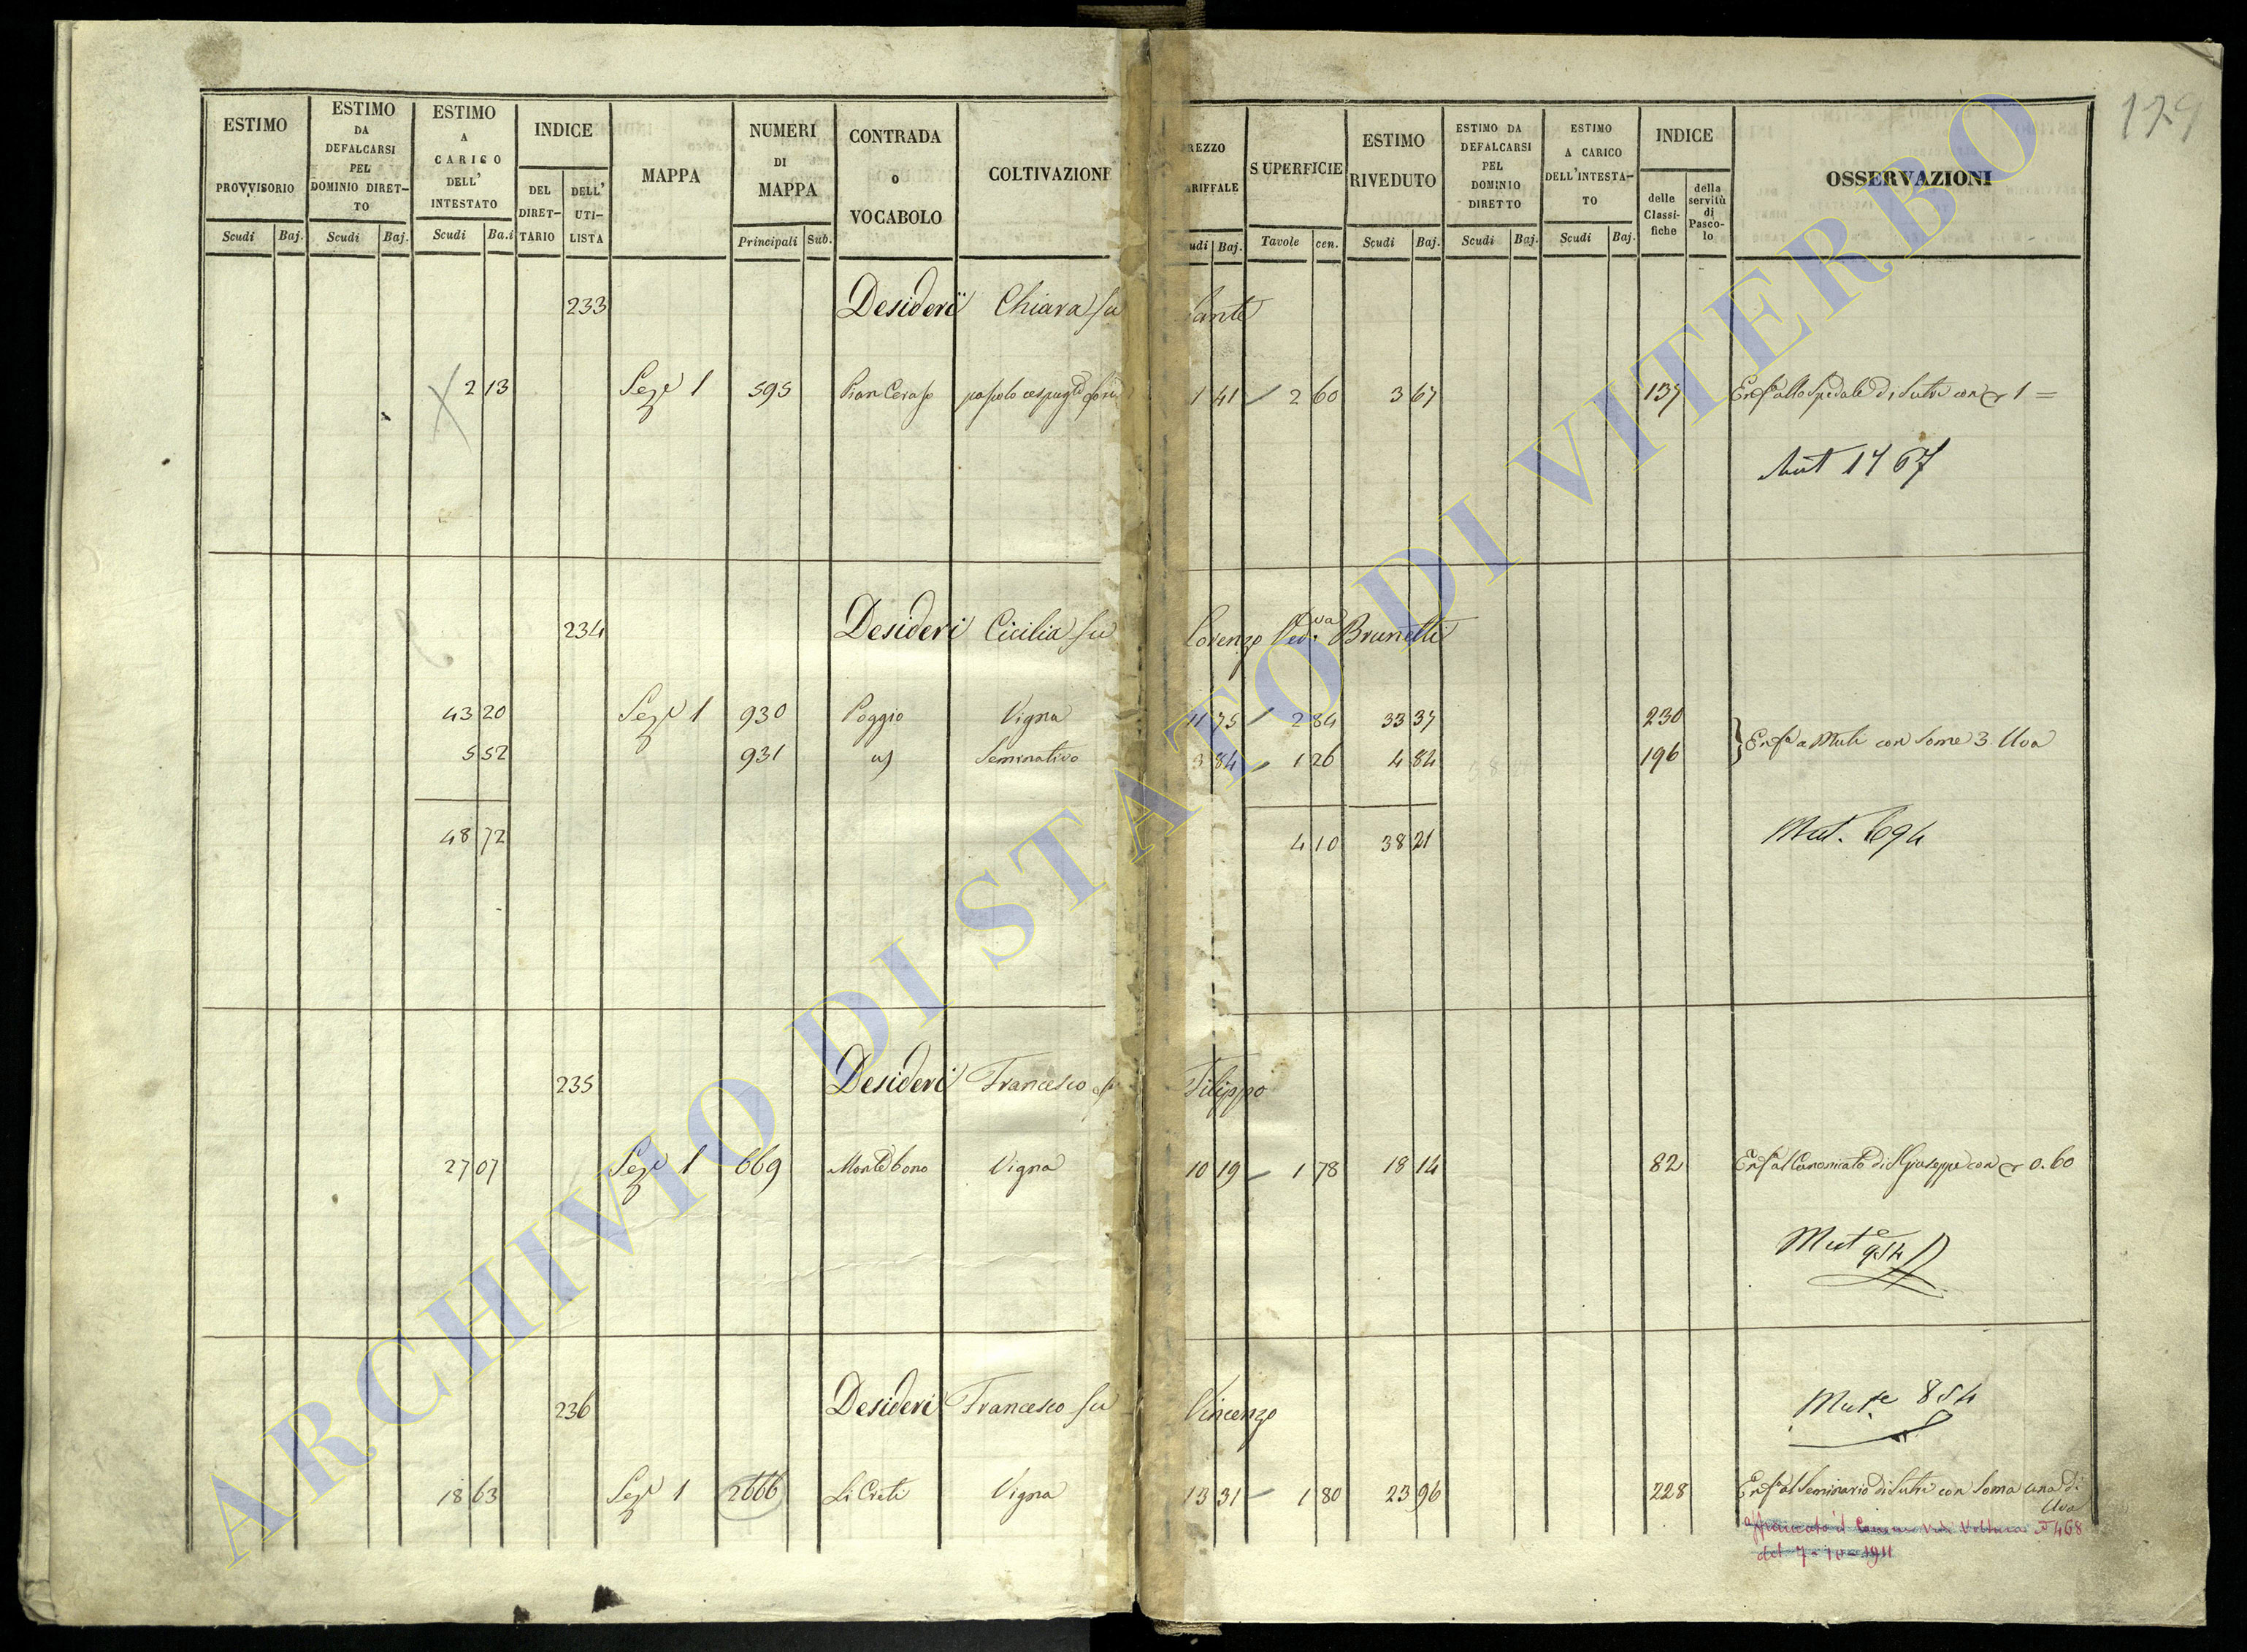 129
ESTIMO PROVVISORIO
ESTIMO DA DEFALCARSI PEL DOMINIO DIRET-TO
ESTIMO A CARICO DELL' INTESTATO
INDICE
DEL DIRET-TARIO
DELL' UTI-LISTA
MAPPA
NUMERI DI MAPPA
CONTRADA o VOCABOLO
COLTIVAZIONE
REZZO ARIFFALE
SUPERFICIE
ESTIMO RIVEDUTO
ESTIMO DA DEFALCARSI PEL DOMINIO DIRETTO
ESTIMO A CARICO DELL'INTESTA-TO
INDICE
delle Classi-fiche
della servitù di Pasco-lo
OSSERVAZIONI
Scudi Baj. Scudi Baj. Scudi Ba.i Principali Sub. udi Baj. Tavole cen. Scudi Baj. Scudi Baj. Scudi Baj.
233 Desideri Chiara fu Sante
2 13 Seze 1 595 Pian Ceraso pascolo cespugto 1 41 2 60 3 67 137 Enfa allo Spedale di Sutri con 1 =
Mut 1467
234 Desideri Cicilia fu Lorenzo Veda Brunetti
43 20 Seze 1 930 Poggio Vigna 11 75 2 84 33 37 230
5 52 931 Seminativo 3 84 1 26 4 84 196 Enfa a Muti con Some 3 Uva
48 72 4 10 38 21 Mut. 694
235 Desideri Francesco fu Filippo
27 07 Seze 1 669 Monte bono Vigna 10 19 1 78 18 14 82 Enfa al Canonicato di S Giuseppe con 0.60
Mute 954
236 Desideri Francesco fu Vincenzo
Mute 854
18 63 Seze 1 2666 Li Creti Vigna 13 31 1 80 23 96 228 Enfa al Seminario di Sutri con Soma una di
Uva
affrancato il Canone Vedi Voltura 468
del 7-10-1911
ARCHIVIO DI STATO DI VITERBO